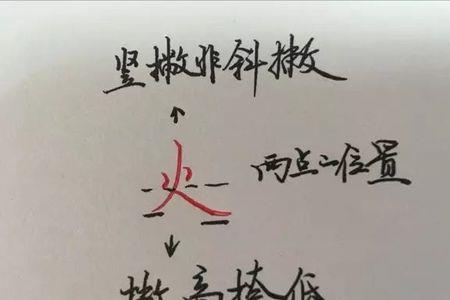 竖撇非斜撇
火
两点的位置
撇高捺低